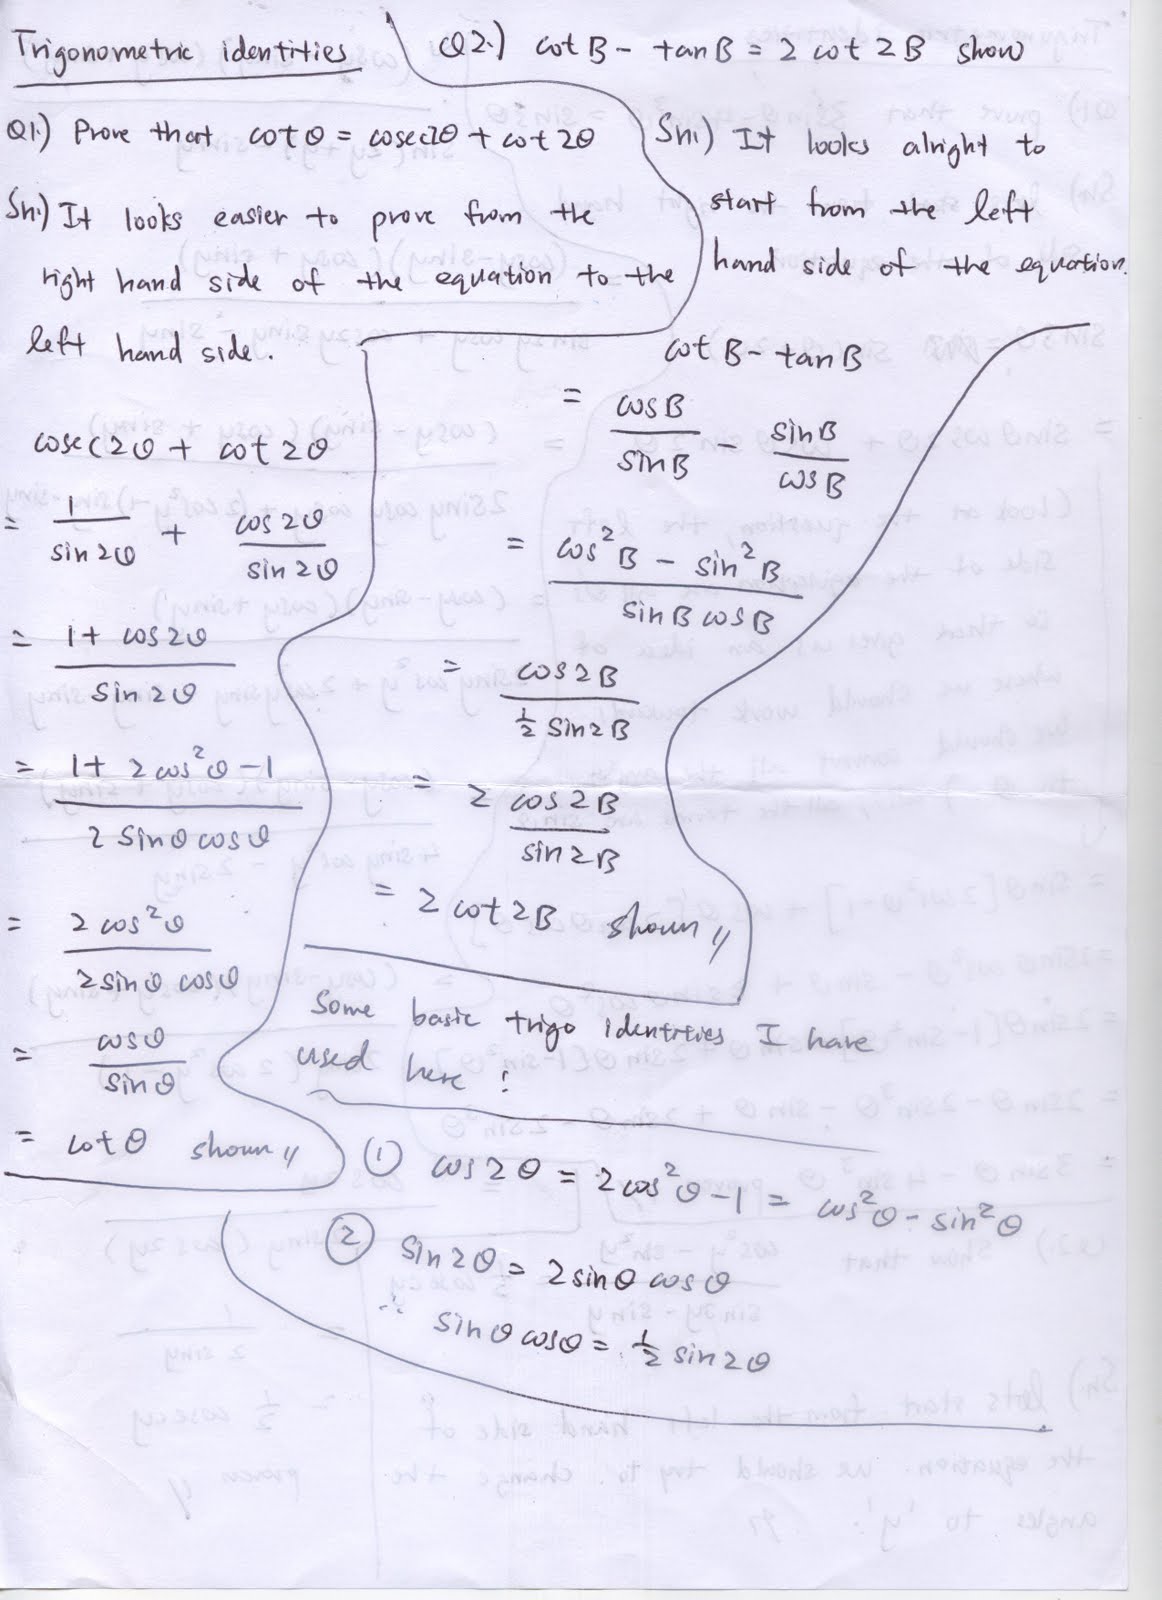 Trigonometric identities
Q1.) Prove that cot θ = cosec2θ + cot 2θ
Sn.) It looks easier to prove from the
right hand side of the equation to the
left hand side.
cosec2θ + cot 2θ
= 1/sin 2θ + cos 2θ/sin 2θ
= (1 + cos 2θ)/(sin 2θ)
= (1 + 2 cos²θ - 1)/(2 sin θ cos θ)
= (2 cos²θ)/(2 sin θ cos θ)
= cos θ/sin θ
= cot θ shown //
Q2.) cot B - tan B = 2 cot 2B show
Sn.) It looks alright to
start from the left
hand side of the equation.
cot B - tan B
= cos B/sin B - sin B/cos B
= (cos²B - sin²B)/(sin B cos B)
= (cos 2B)/(½ sin 2B)
= 2 cos 2B/sin 2B
= 2 cot 2B shown //
Some basic trigo identities I have
used here :
① cos 2θ = 2 cos²θ - 1 = cos²θ - sin²θ
② sin 2θ = 2 sin θ cos θ
∴ sin θ cos θ = ½ sin 2θ